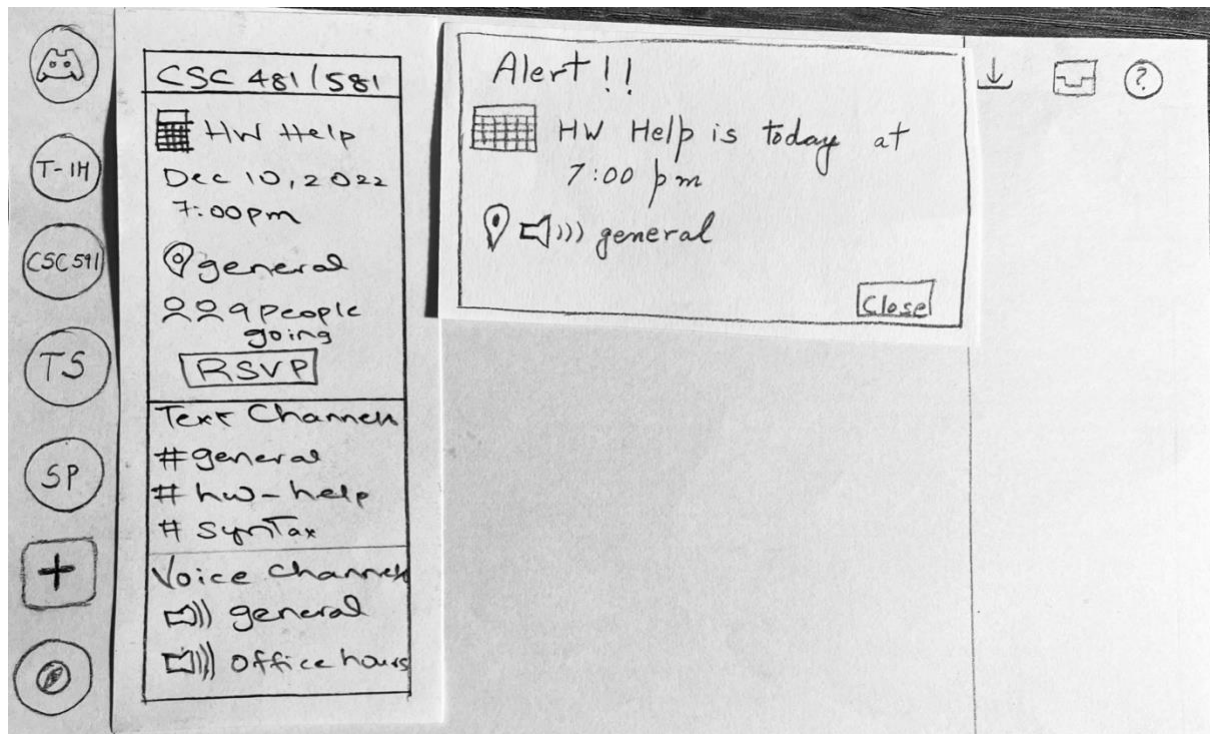 T-1H
CSC 591
TS
SP
+
CSC 481/581
HW Help
Dec 10, 2022
7:00pm
general
9 people
going
RSVP
Text Channels
#general
# hw-help
# Syntax
Voice Channels
general
office hours
Alert!!
HW Help is today at
7:00 pm
general
Close
?